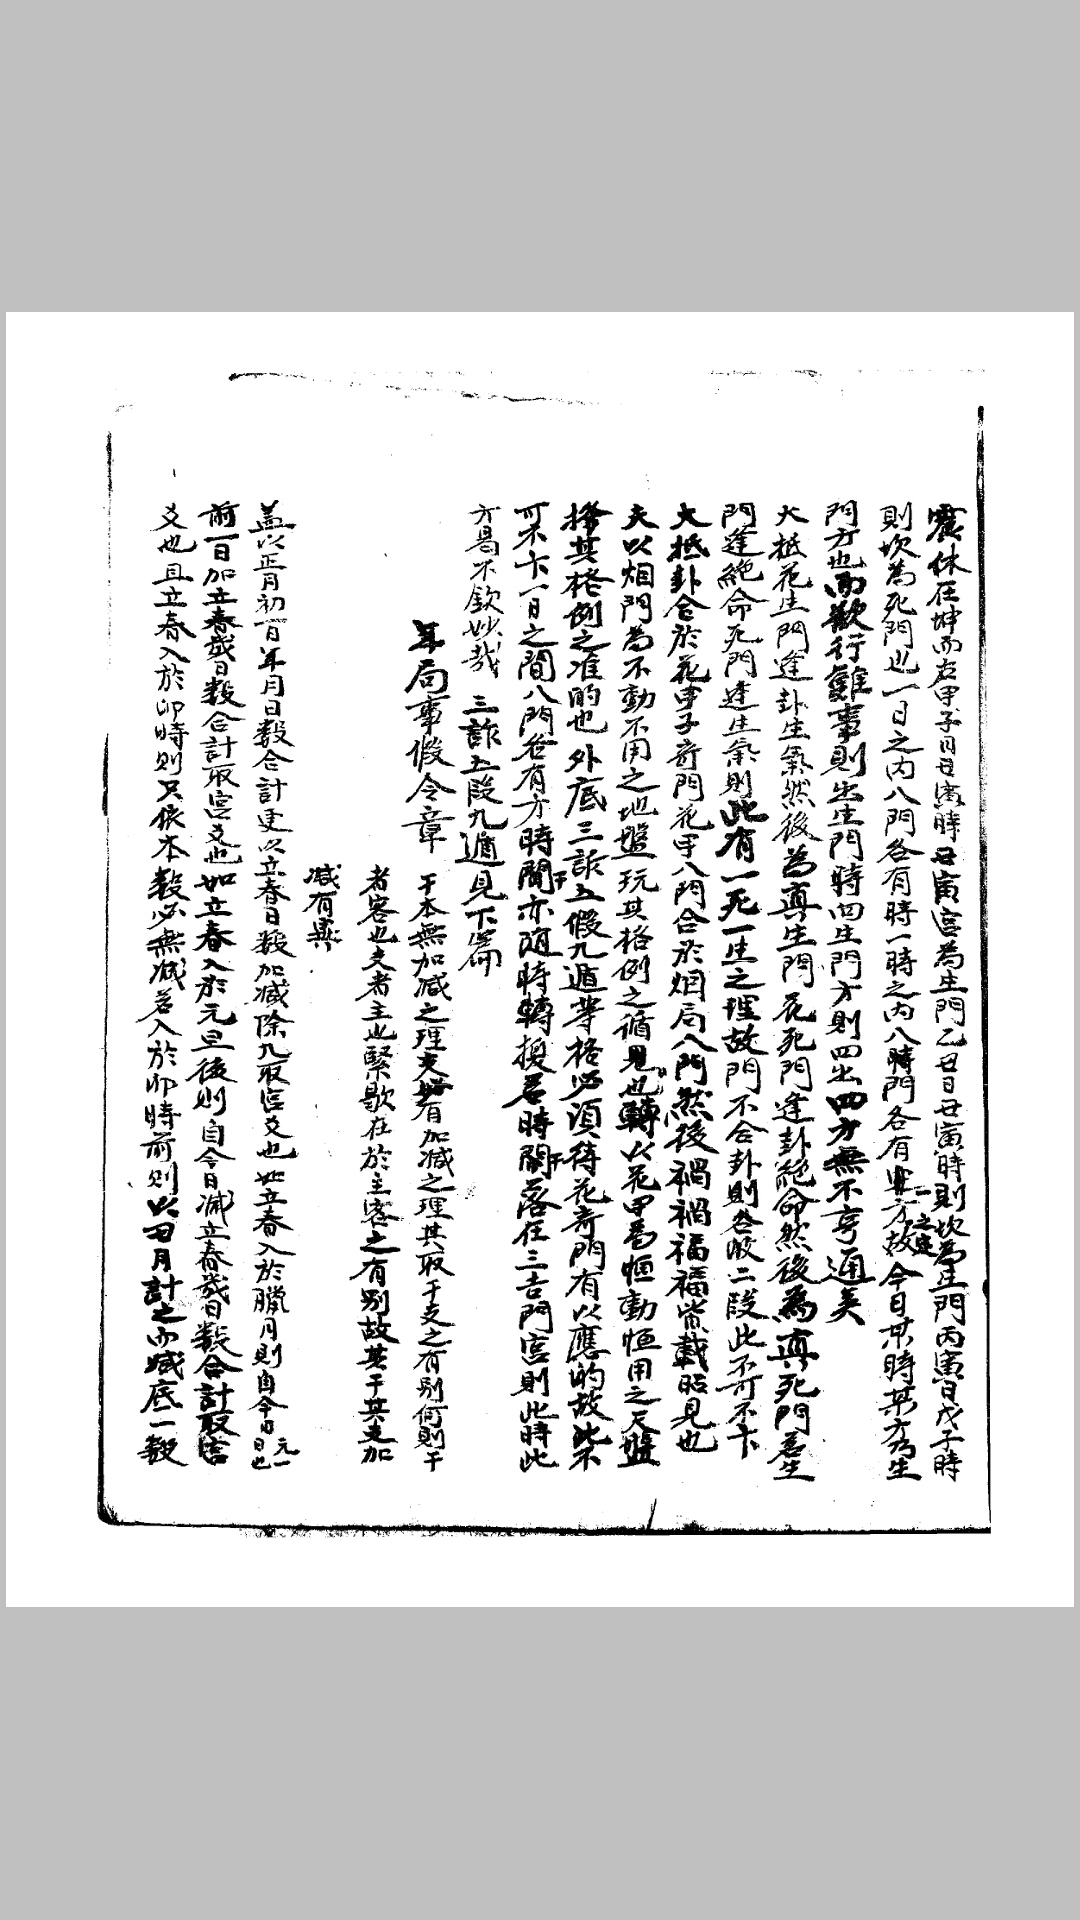 震休在坤而右甲子日丑寅時丑寅宮為生門乙丑日丑寅時則坎為生門丙寅日戊子時
則坎為死門也一日之內八門各有時一時之內八時門各有方故今日某時某方為生
門方也而欲行難事則出生門時向生門方則四出四方無不亨通矣
大抵花生門逢卦生氣然後為真生門花死門逢卦絕命然後為真死門若生
門逢絕命死門逢生氣則此有一死一生之理故門不合卦則各收二段此不可不卞
大抵卦合於花甲子奇門花甲八門合於烟局八門然後禍禍福福皆載昭見也
夫以烟門為不動不用之地盤玩其格例之循見也轉以花甲為恒動恒用之天盤
擇其格例之准的也外底三詐五假九遁等格必須待花奇門有以應的故此不
可不卞一日之間八門各有方時間亦隨時轉換若時開落在三吉門宮則此時此
方曷不欽妙哉 三詐五段九遁見下篇
年局事假令章 干本無加減之理支有加減之理其取干支之有別何則干
者客也支者主也緊歇在於主客之有別故其干其支加
減有異
蓋以正月初一日年月日數合計更以立春日數加減除九取宮爻也如立春入於臘月則自今日元一日也
前一日加立春幾日數合計取宮爻也如立春入於元旦後則自今日減立春幾日數合計取宮
爻也且立春入於卯時則只依本數必無減若入於卯時前則以丑月計之而減底一數